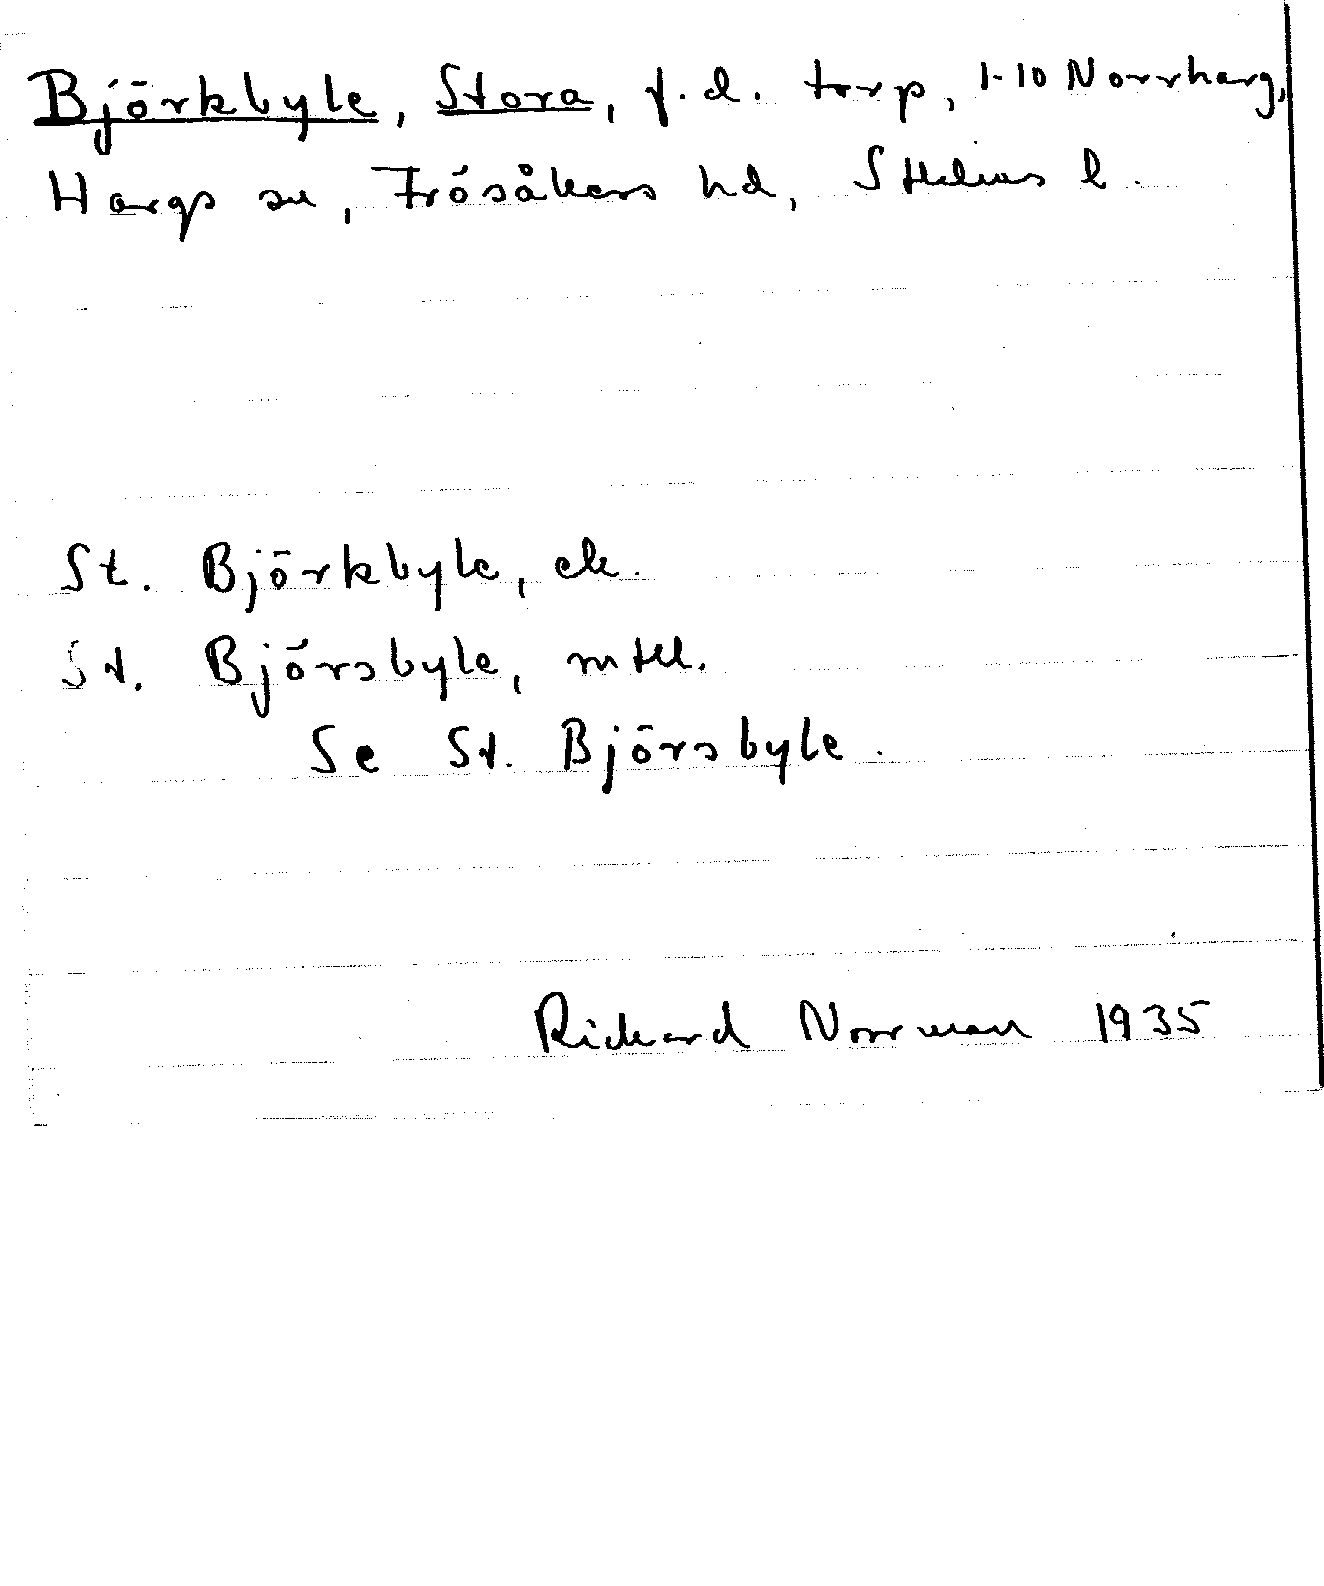 Björkbyle, Stora, f.d. torp, 1-10 Norrharg,
Hargs sn, Frösåkers hd, Sthlms l.
St. Björkbyle, ek.
St. Björsbyle, mtll.
Se St. Björsbyle.
Rickard Norrman 1935